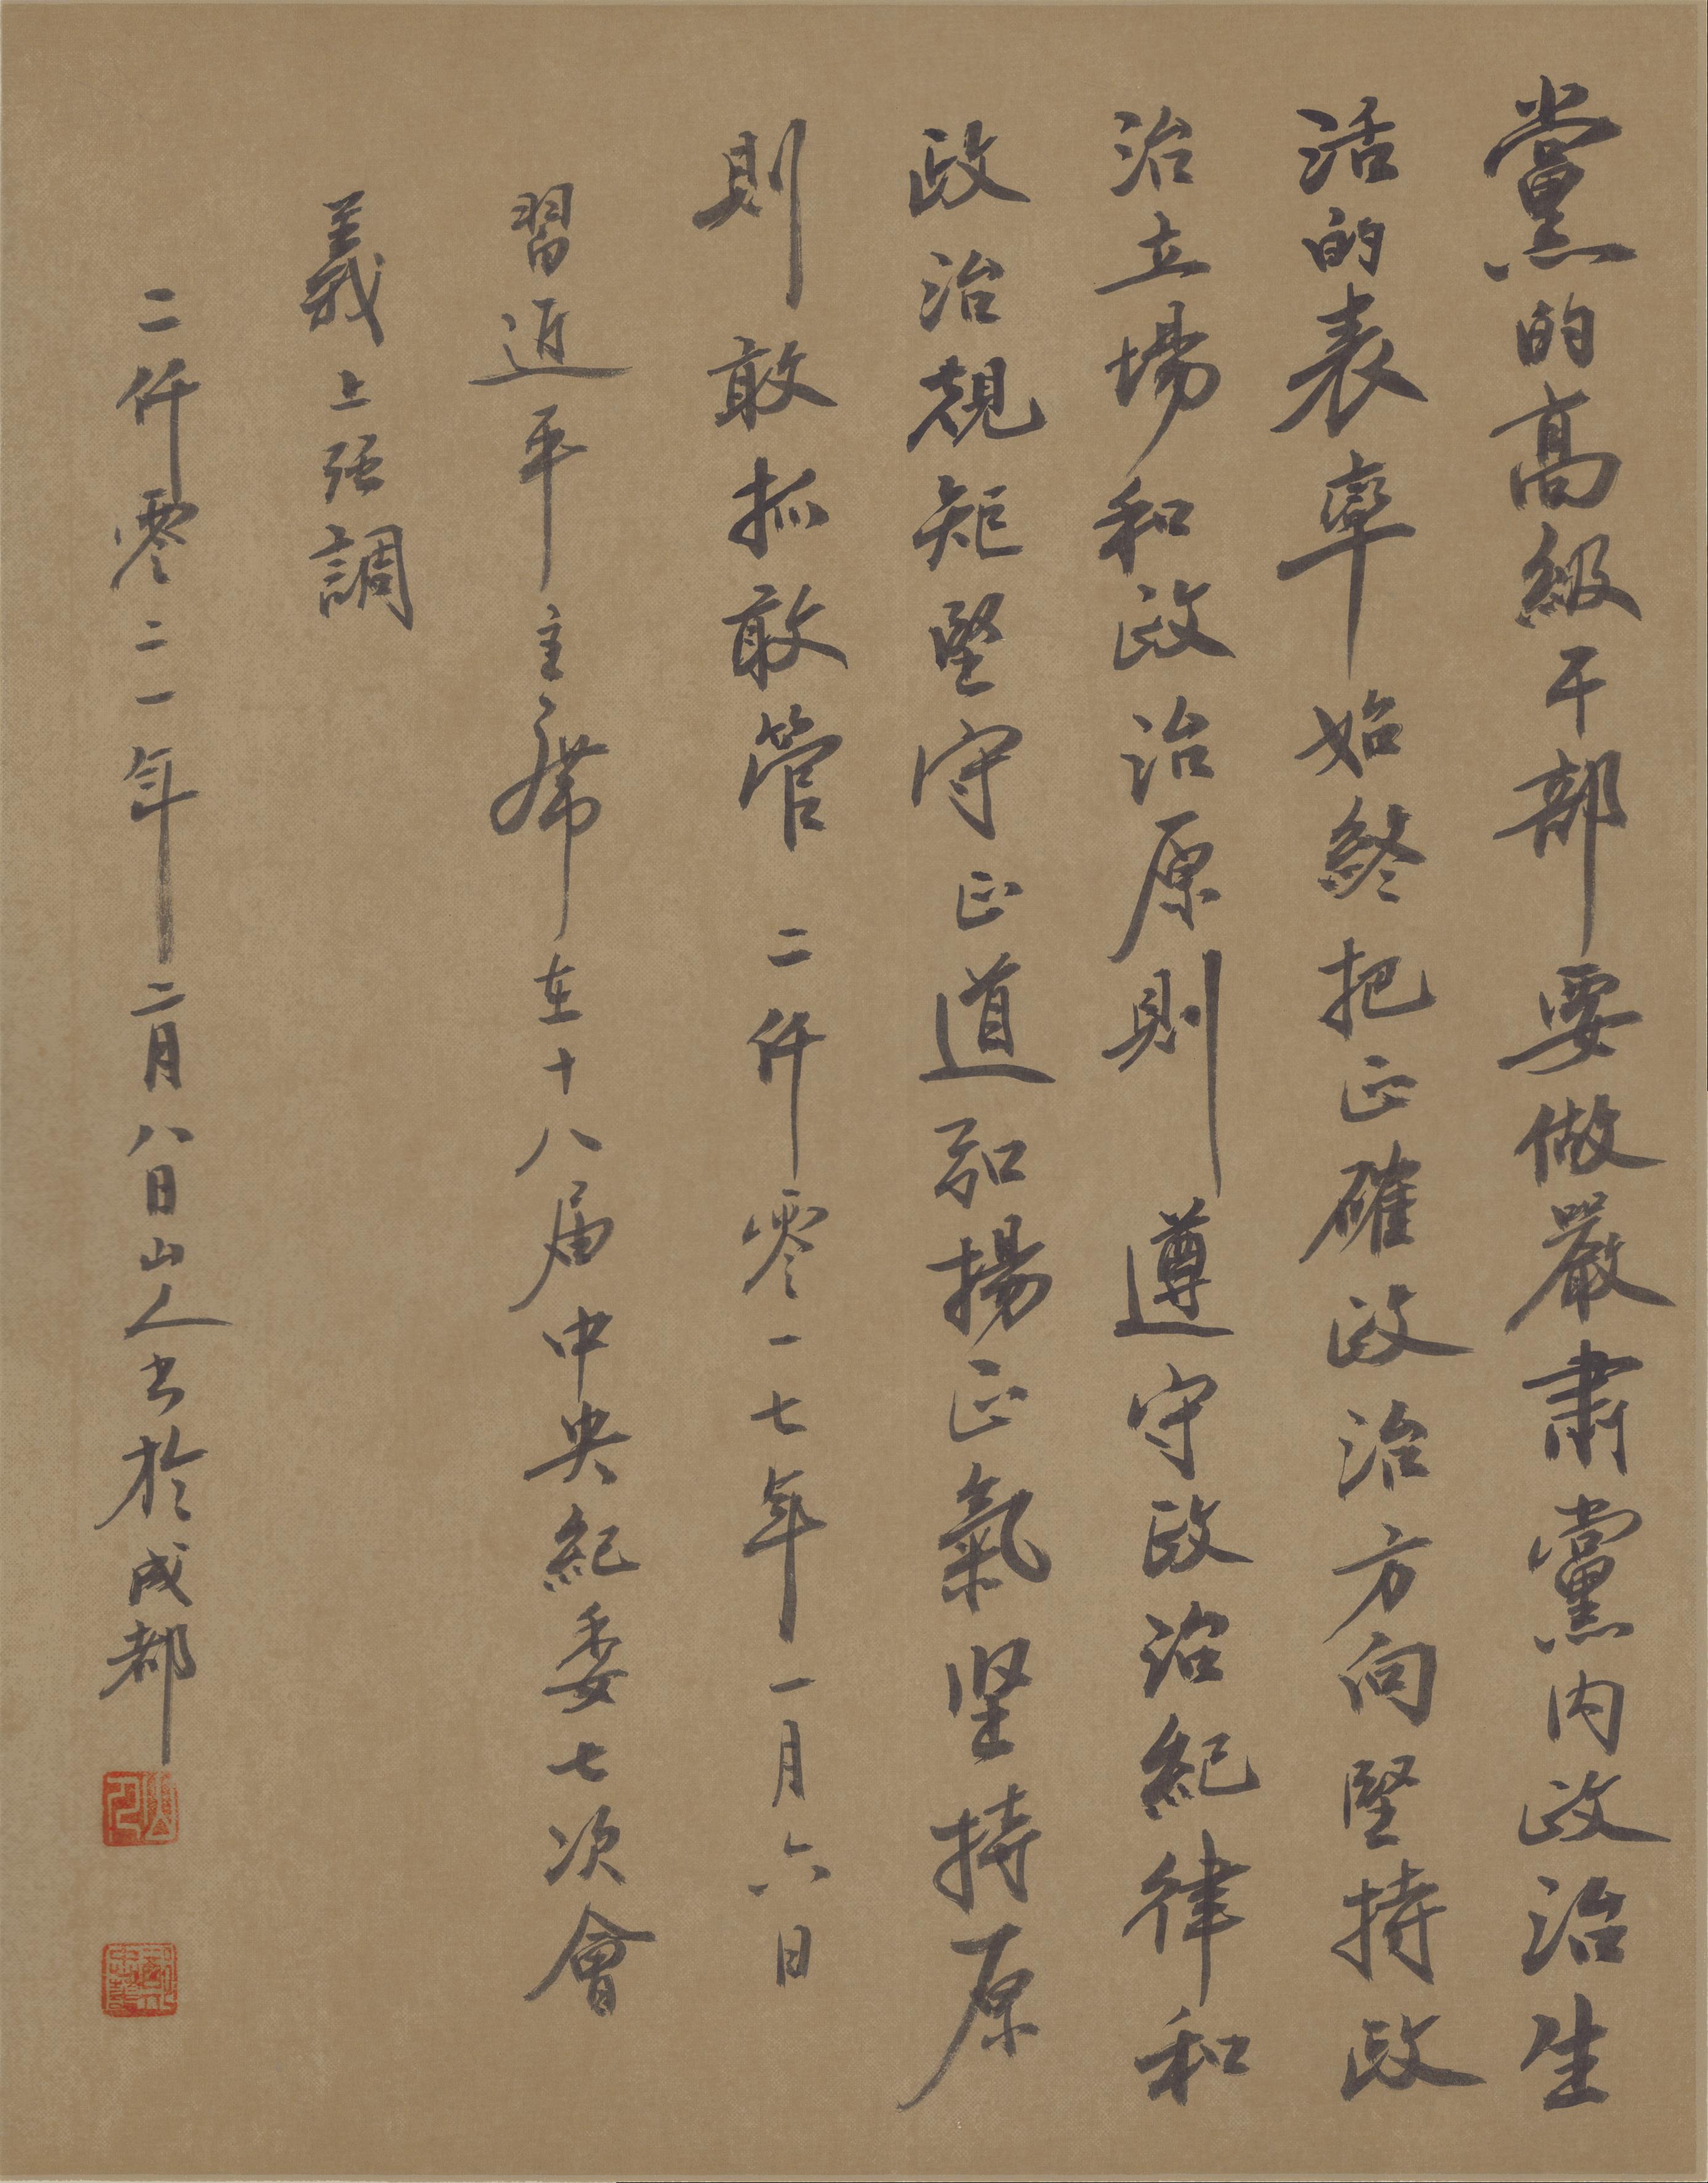 黨的高級干部要做嚴肅黨内政治生
活的表率始終把正確政治方向堅持政
治立場和政治原則遵守政治紀律和
政治規矩堅守正道弘揚正氣坚持原
則敢抓敢管二仟零一七年一月六日
習近平主席在十八届中央紀委七次會
義上强調
二仟零二一年二月八日山人书於成都
山人